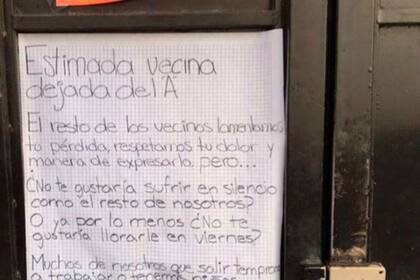 Estimada vecina
dejada del 1ºA
El resto de los vecinos lamentamos
tu pérdida, respetamos tu dolor y
manera de expresarlo, pero...
¿No te gustaría sufrir en silencio
como el resto de nosotros?
O ya por lo menos ¿No te
gustaría llorarle en viernes?
Muchos de nosotros que salir temprano
a trabajar o tenemos